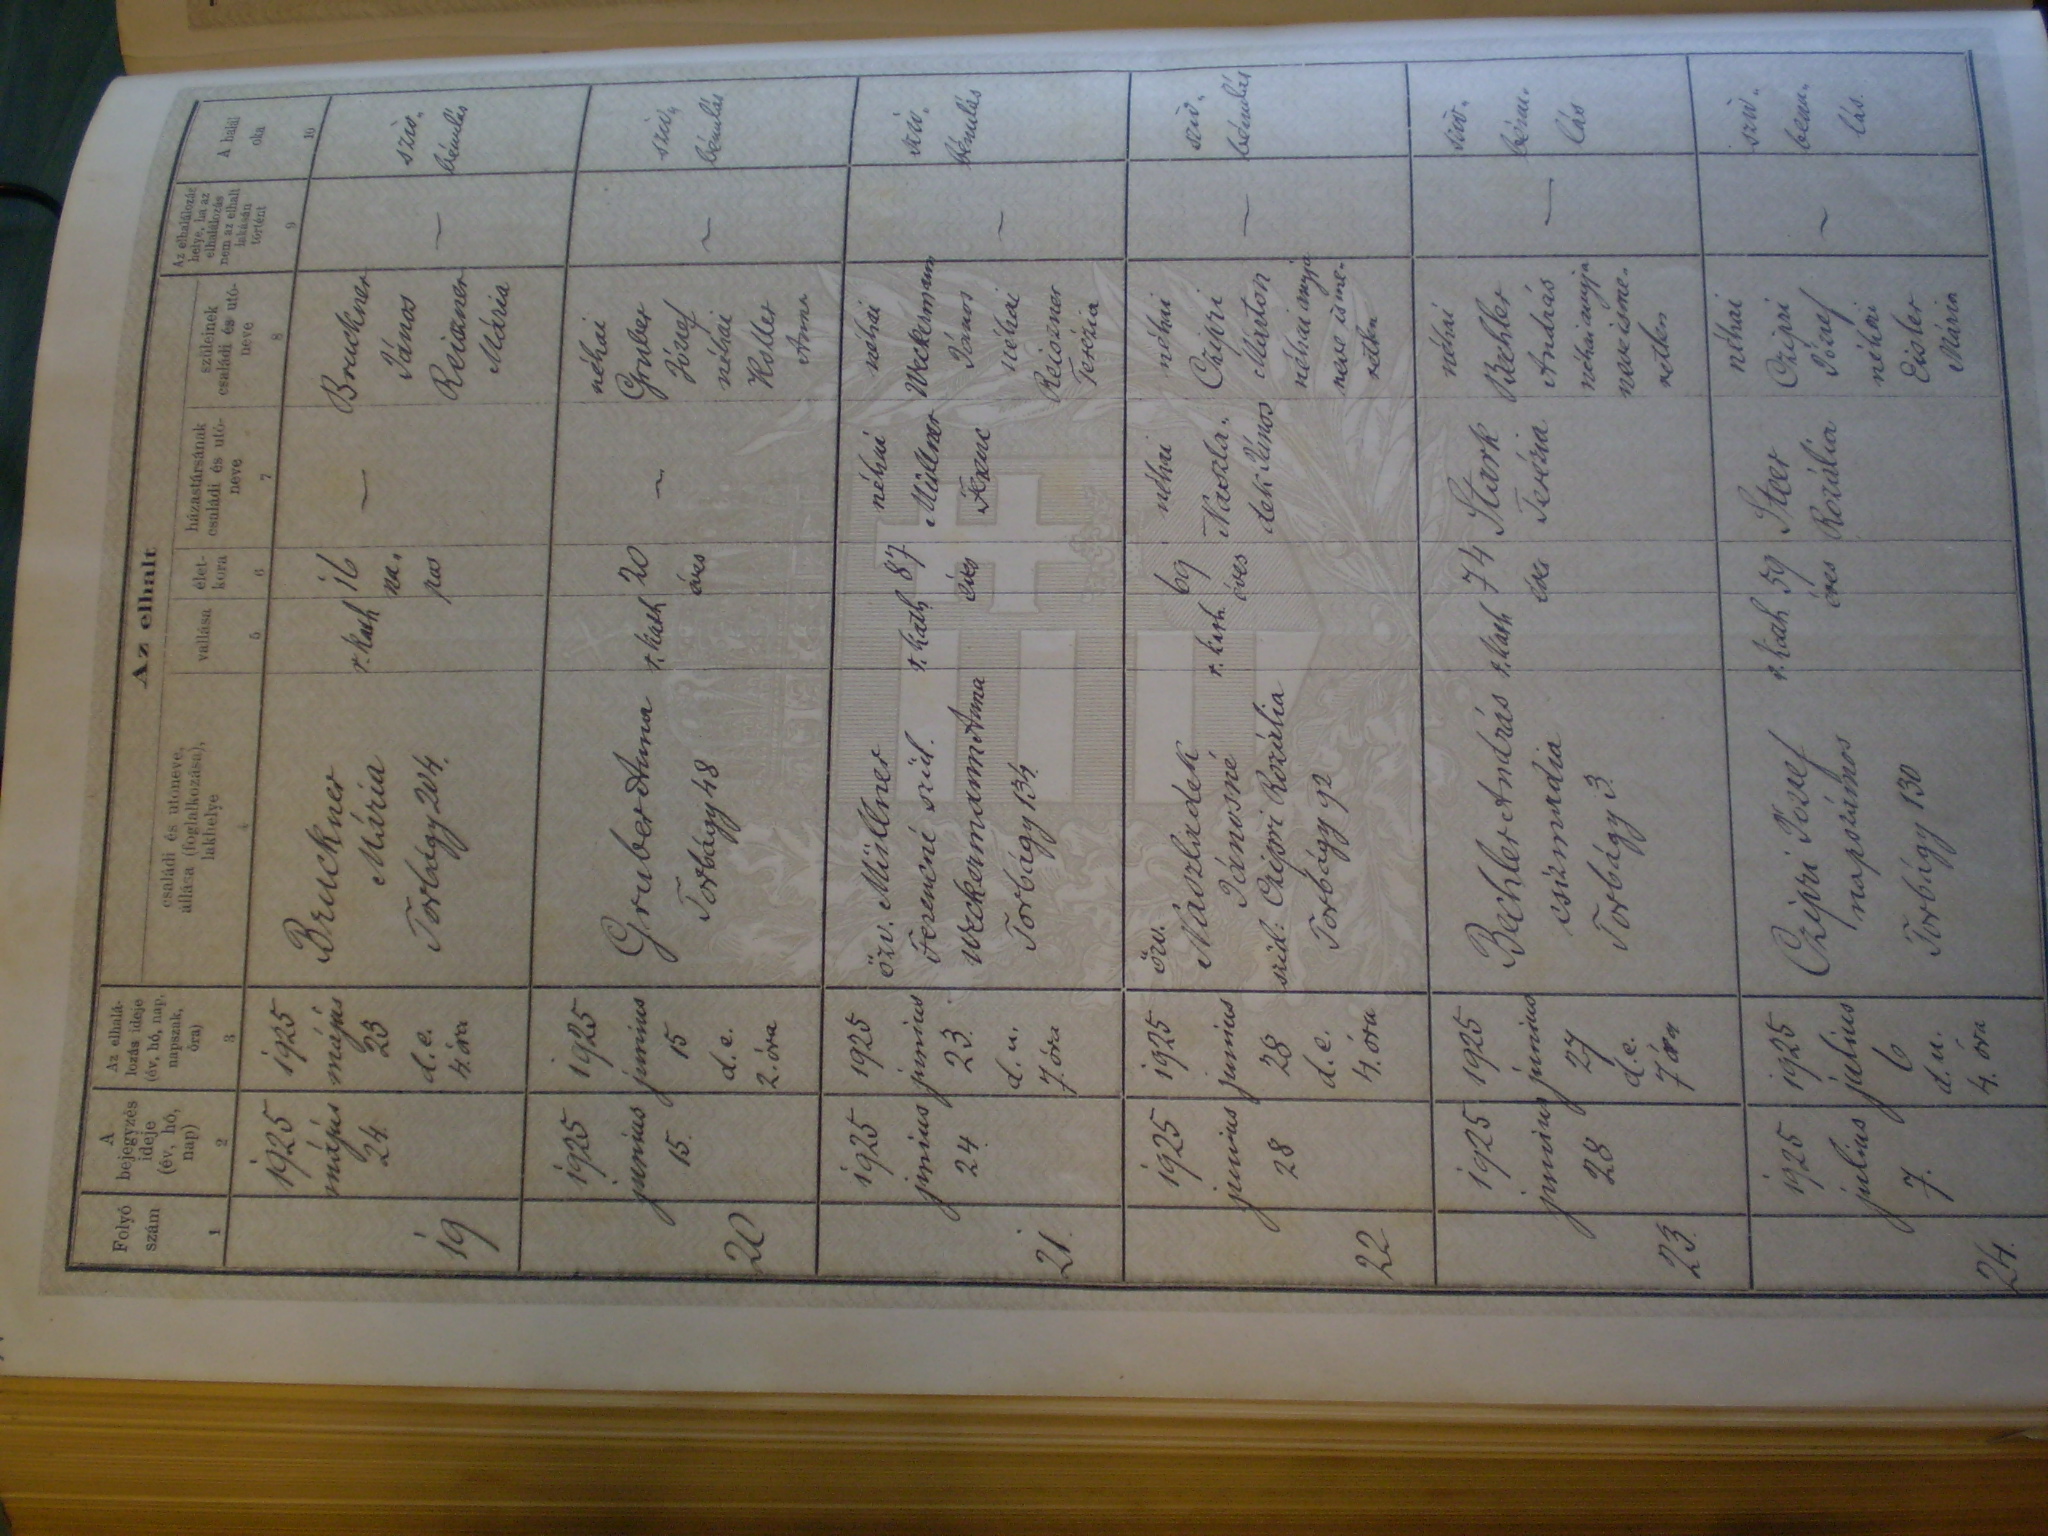 Az elhalt
Folyó
szám
A
bejegyzés
ideje
(év, hó,
nap)
Az elhalá-
lozás ideje
(év, hó, nap,
napszak,
óra)
családi és utóneve,
állása (foglalkozása),
lakhelye
vallása
élet-
kora
házastársának
családi és utó-
neve
szüleinek
családi és utó-
neve
Az elhalálozás
helye, ha az
elhalálozás
nem az elhalt
lakásán
történt
A halál
oka
1
2
3
4
5
6
7
8
9
10
19
1925
május
24.
1925
május
23
d.e.
4. óra
Bruckner
Mária
Torbágy 204.
r. kath
16
na-
pos
—
Bruckner
János
Reiszner
Mária
—
sziv-
bénulás
20
1925
junius
15.
1925
junius
15
d.e.
2. óra
Gruber Anna
Torbágy 48
r. kath
20
éves
—
néhai
Gruber
József
néhai
Holler
Anna
—
sziv-
bénulás
21.
1925
junius
24.
1925
junius
23.
d.u.
7 óra
özv. Müllner
Ferencné szül.
Weckermann Anna
Torbágy 134
r. kath
87
éves
néhai
Müllner
Ferenc
néhai
Weckermann
János
néhai
Reiszner
Terézia
—
sziv-
bénulás
22
1925
junius
28
1925
junius
28
d.e.
4. óra
özv.
Naszladek
Jánosné
szül: Czipri Rozália
Torbágy 92
r. kath.
69
éves
néhai
Naszla-
dek János
néhai
Czipri
Márton
néhai anyja
neve isme-
retlen
—
sziv-
bénulás
23.
1925
junius
28
1925
junius
27
d.e.
7 óra
Bechler András
csizmadia
Torbágy 3.
r. kath
74
éves
Stark
Terézia
néhai
Bechler
András
néhai anyja
neve isme-
retlen
—
sziv-
bénu-
lás
24.
1925
julius
7.
1925
julius
6
d.u.
4. óra
Czipri József
napszámos
Torbágy 130
r. kath
59
éves
Steer
Rozália
néhai
Czipri
József
néhai
Eisler
Mária
—
sziv-
bénu-
lás.